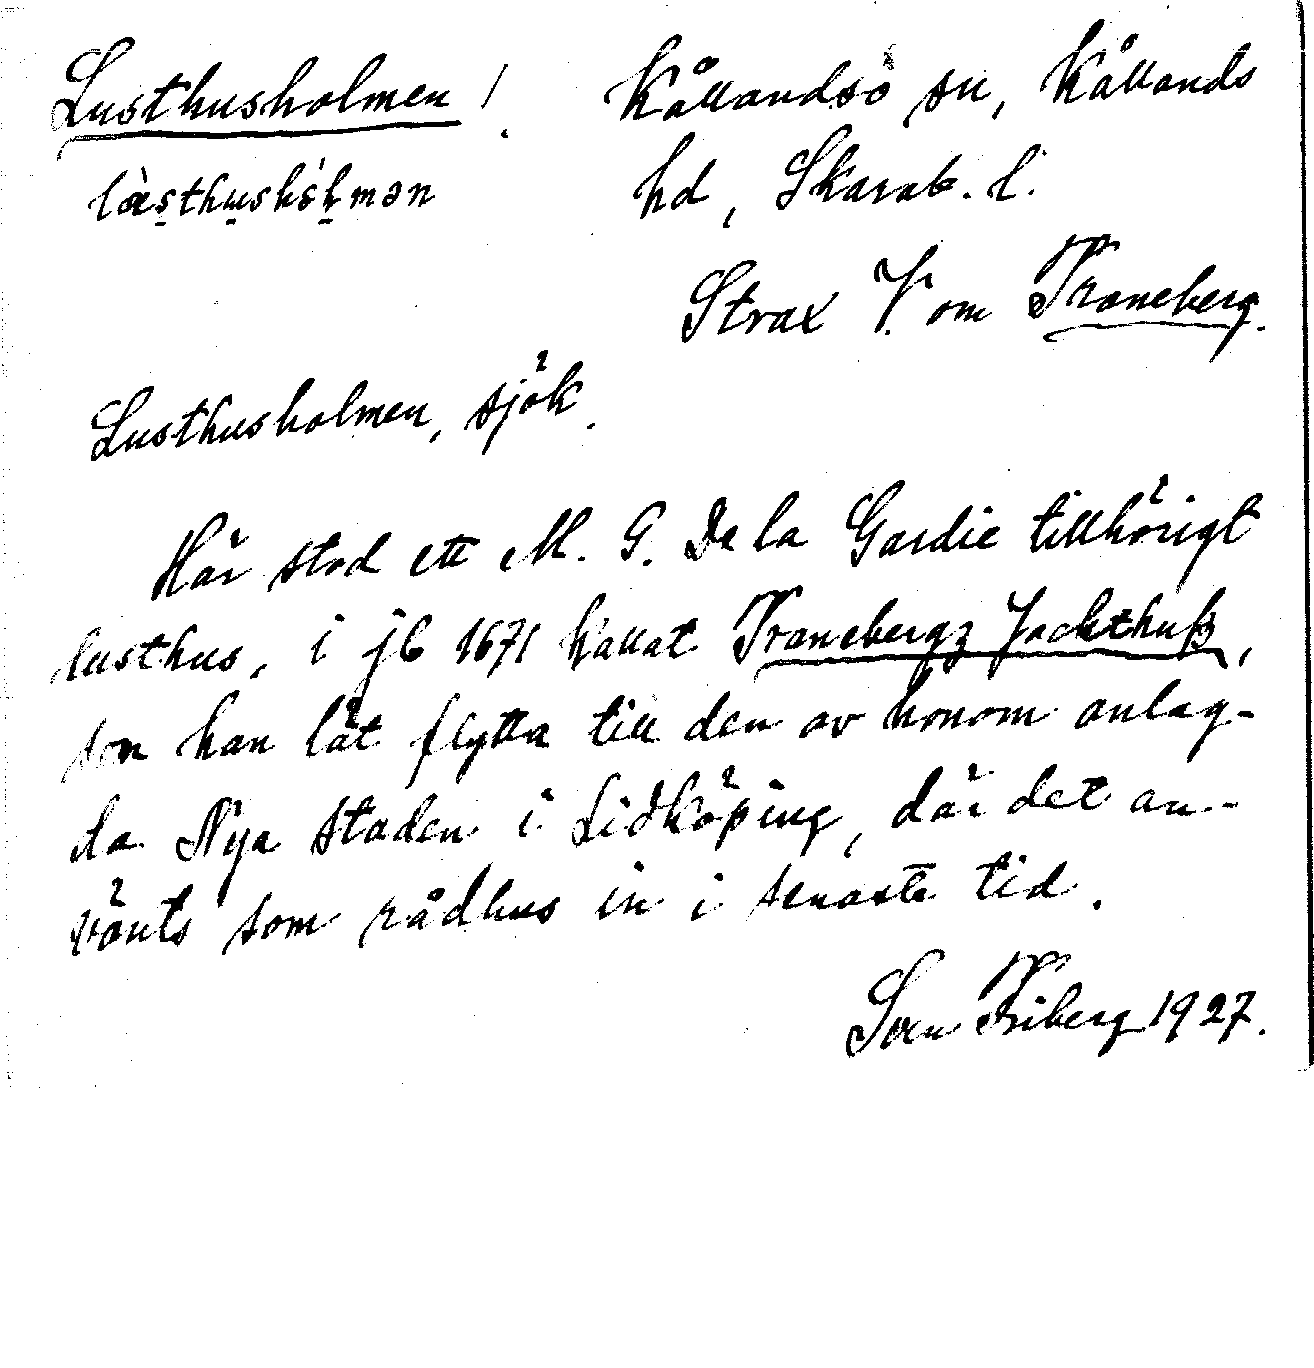 Lusthusholmen! Kållandsö sn, Kållands
hd, Skarab. l.
Strax V. om Traneberg.
Lusthusholmen, sjök.
Här stod ett M. G. De la Gardie tillhörigt
lusthus, i jb 1671 kallat Tranebergz Jackthuß,
som han lät flytta till den av honom anlag-
da Nya staden i Lidköping, där det an-
vänts som rådhus in i senaste tid.
Sven Friberg 1927.